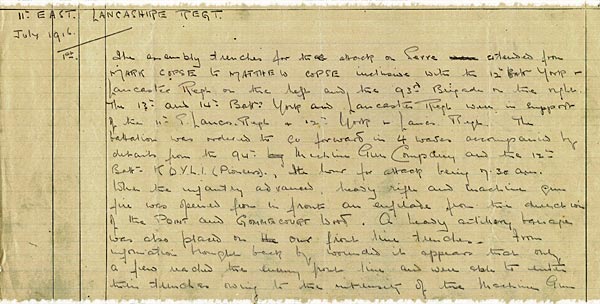 11th EAST. LANCASHIRE REGT.
July 1916.
1st. The assembly trenches for the attack on Serre extended from
MARK COPSE to MATTHEW COPSE inclusive with the 12th Batt York &
Lancaster Regt on the left and the 93rd Brigade on the right.
The 13th and 14th Batts York and Lancaster Regt were in support
of the 11th E. Lancs. Regt & 12th York & Lancs. Regt. The
battalion was ordered to go forward in 4 waves accompanied by
details from the 94th Machine Gun Company and the 12th
Batt. K.O.Y.L.I. (Pioneers)., the hour for attack being 7.30 am.
When the infantry advanced heavy rifle and machine gun
fire was opened from in front and enfilade from the direction
of the POINT and GOMMECOURT WOOD. A heavy artillery barrage
was also placed on our front line trenches. From
information brought back by wounded it appears that only
a few reached the enemy front line and were able to enter
their trenches owing to the intensity of the Machine Gun